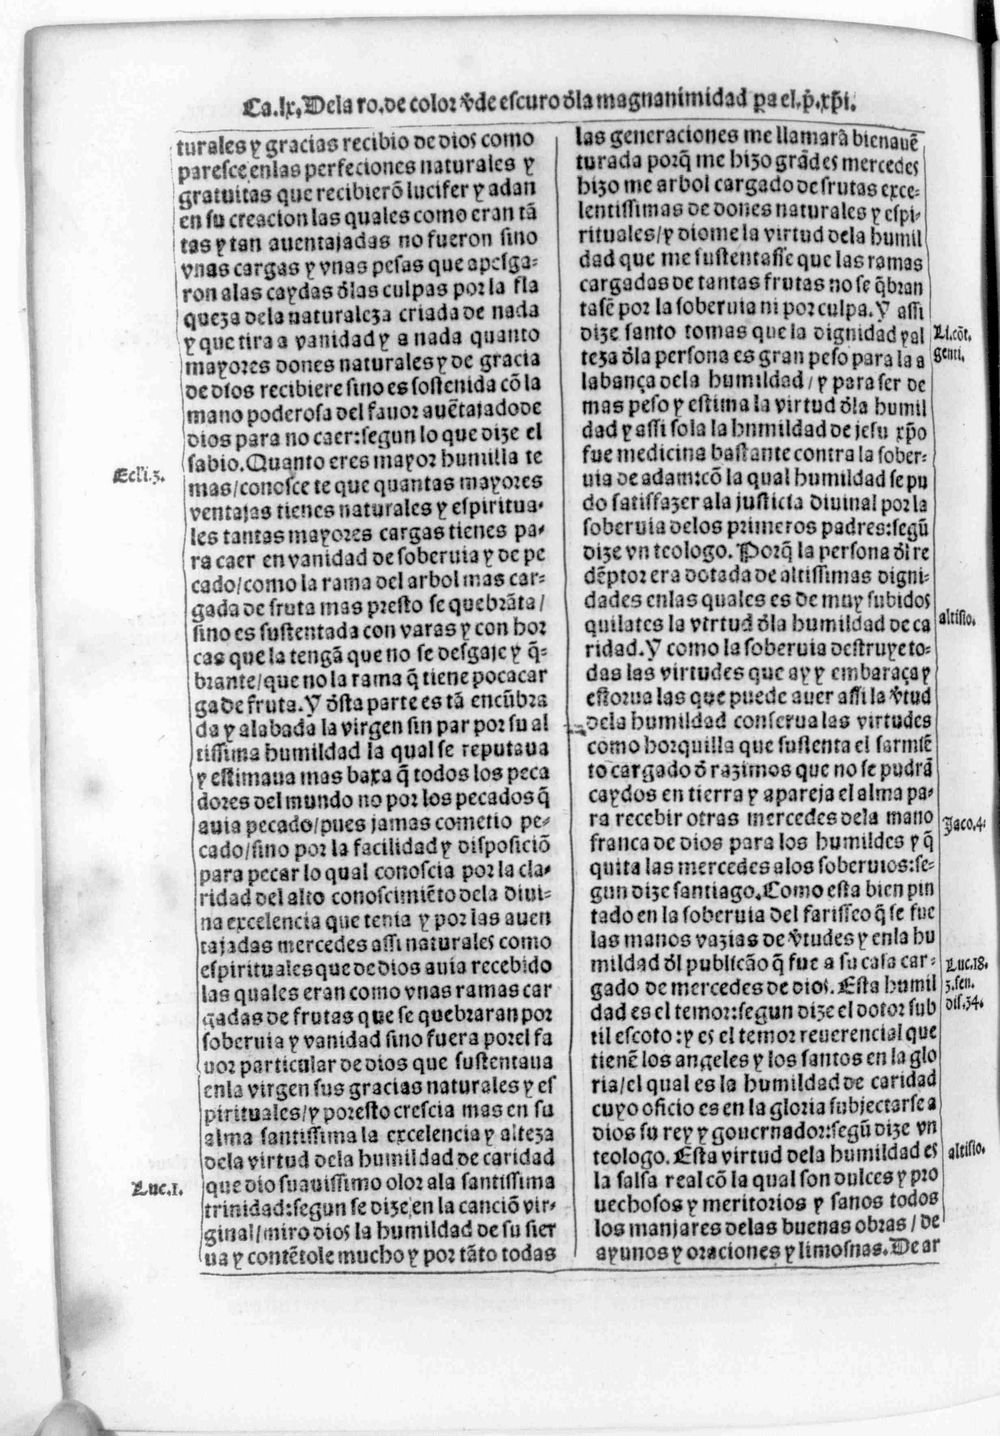 Ca.lx. Dela ro. de color v̄de escuro d̄la magnanimidad pa el .p̄. xp̄i.
turales y gracias recibio de dios como
paresce enlas perfeciones naturales y
gratuitas que recibierō lucifer y adan
en su creacion las quales como eran tā
tas y tan auentajadas no fueron sino
vnas cargas y vnas pesas que apesga-
ron alas caydas d̄las culpas por la fla
queza dela naturaleza criada de nada
y que tira a vanidad y a nada quanto
mayores dones naturales y de gracia
de dios recibiere sino es sostenida cō la
mano poderosa del fauor auētajado de
dios para no caer: segun lo que dize el
sabio. Quanto eres mayor humilla te
Ecli.3.
mas/conosce te que quantas mayores
ventajas tienes naturales y espiritua-
les tantas mayores cargas tienes pa-
ra caer en vanidad de soberuia y de pe
cado/como la rama del arbol mas car-
gada de fruta mas presto se quebrāta/
sino es sustentada con varas y con hor
cas que la tengā que no se desgaje y q̄-
brante/que no la rama q̄ tiene poca car
ga de fruta. Y d̄sta parte es tā encūbra
da y alabada la virgen sin par por su al
tissima humildad la qual se reputaua
y estimaua mas baxa q̄ todos los peca
dores del mundo no por los pecados q̄
auia pecado/pues jamas cometio pe-
cado/sino por la facilidad y disposiciō
para pecar lo qual conoscia por la cla-
ridad del alto conoscimiēto dela diui-
na excelencia que tenia y por las auen
tajadas mercedes assi naturales como
espirituales que de dios auia recebido
las quales eran como vnas ramas car
gadas de frutas que se quebraran por
soberuia y vanidad sino fuera por el fa
uor particular de dios que sustentaua
enla virgen sus gracias naturales y es
pirituales/y por esto crescia mas en su
alma santissima la excelencia y alteza
dela virtud dela humildad de caridad
Luc.1.
que dio suauissimo olor ala santissima
trinidad: segun se dize en la canciō vir-
ginal/miro dios la humildad de su sier
ua y contētole mucho y por tāto todas
las generaciones me llamarā bienauē
turada porq̄ me hizo grādes mercedes
hizo me arbol cargado de frutas exce-
lentissimas de dones naturales y espi-
rituales/y diome la virtud dela humil
dad que me sustentasse que las ramas
cargadas de tantas frutas no se q̄bran
tasē por la soberuia ni por culpa. Y assi
dize santo tomas que la dignidad y al
Li.cōt.
teza d̄la persona es gran peso para la a
genti.
labança dela humildad/y para ser de
mas peso y estima la virtud d̄la humil
dad y assi sola la humildad de jesu xp̄o
fue medicina bastante contra la sober-
uia de adam: cō la qual humildad se pu
do satisfazer ala justicia diuinal por la
soberuia delos primeros padres: segū
dize vn teologo. Porq̄ la persona d̄l re
dēptor era dotada de altissimas digni-
dades enlas quales es de muy subidos
quilates la virtud d̄la humildad de ca
altisio.
ridad. Y como la soberuia destruye to-
das las virtudes que ay y embaraça y
estorua las que puede auer assi la v̄tud
dela humildad conserua las virtudes
como horquilla que sustenta el sarmiē
to cargado d̄ razimos que no se pudrā
caydos en tierra y apareja el alma pa-
ra recebir otras mercedes dela mano
Jaco.4.
franca de dios para los humildes y q̄
quita las mercedes alos soberuios: se-
gun dize santiago. Como esta bien pin
tado en la soberuia del fariseo q̄ se fue
las manos vazias de v̄tudes y enla hu
mildad d̄l publicāo q̄ fue a su casa car-
Luc.18.
gado de mercedes de dios. Esta humil
3.sen.
dad es el temor: segun dize el dotor sub
dis.34.
til escoto: y es el temor reuerencial que
tienē los angeles y los santos en la glo
ria/el qual es la humildad de caridad
cuyo oficio es en la gloria subjectarse a
dios su rey y gouernador: segū dize vn
teologo. Esta virtud dela humildad es
altisio.
la salsa real cō la qual son dulces y pro
uechosos y meritorios y sanos todos
los manjares delas buenas obras/de
ayunos y oraciones y limosnas. De ar